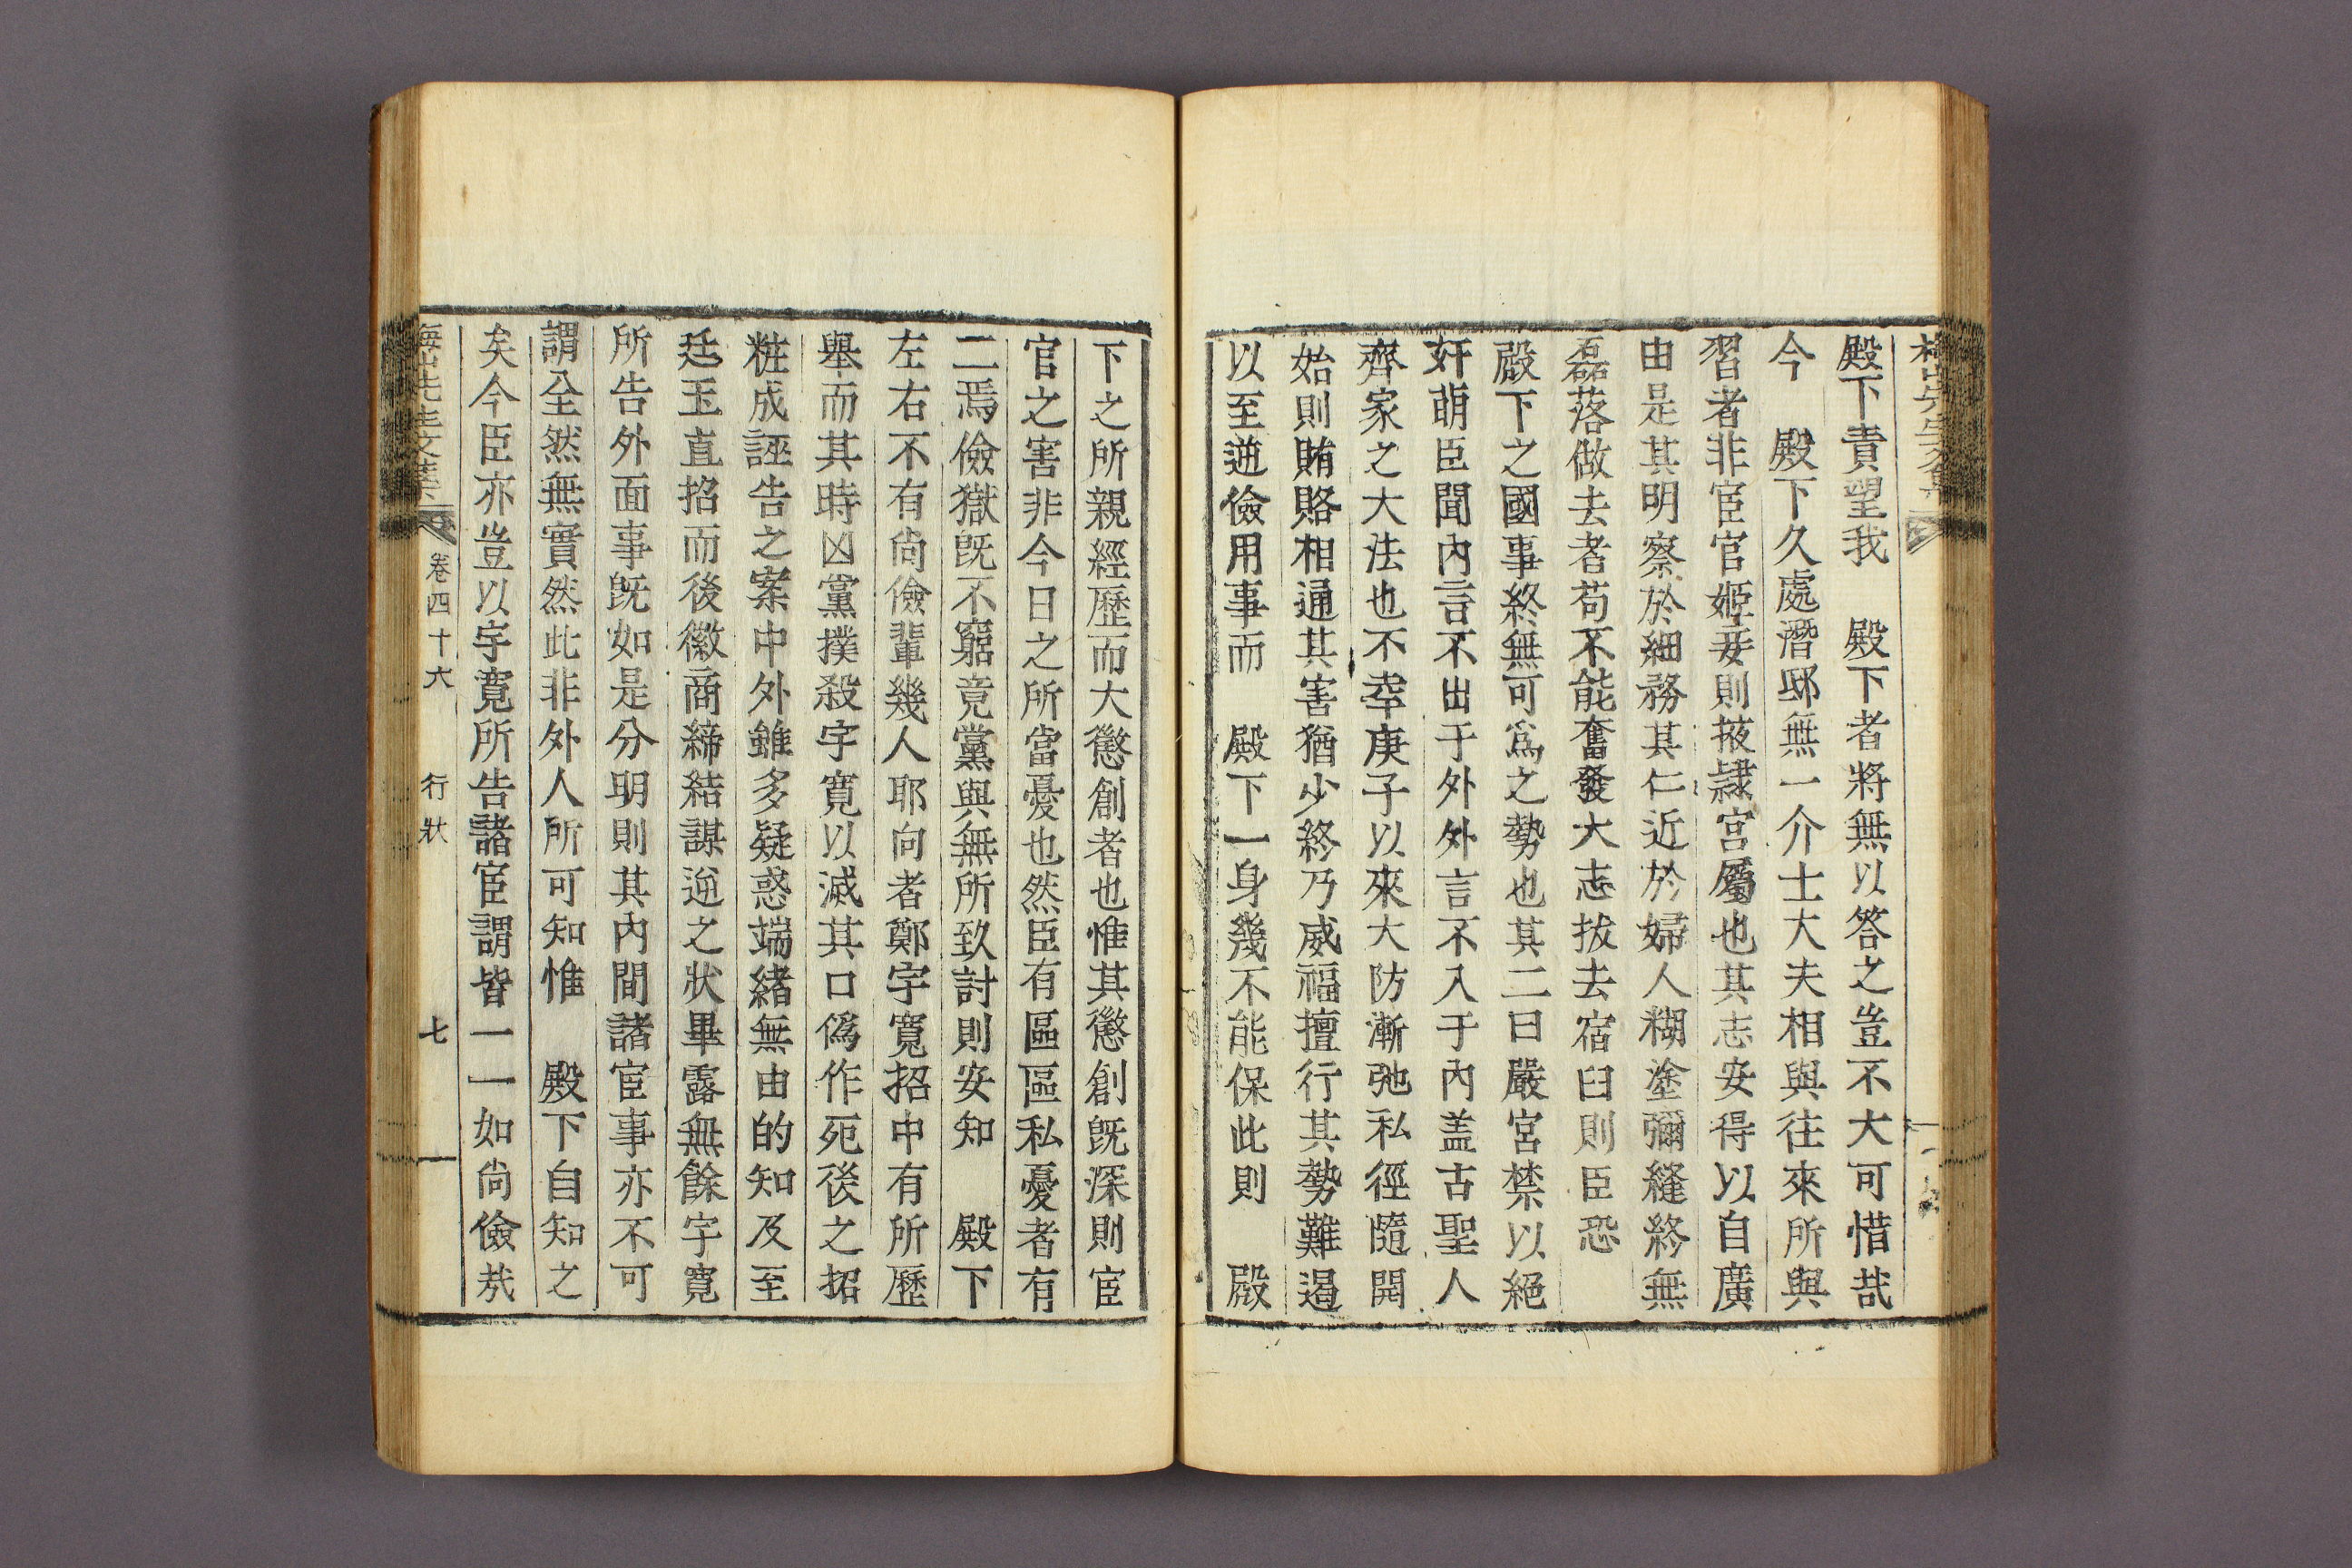 殿下責望我 殿下者將無以答之豈不大可惜哉
今 殿下久處潛邸無一介士大夫相與往來所與
習者非宦官姬妾則掖隷宮屬也其志安得以自廣
由是其明察於細務其仁近於婦人糊塗彌縫終無
磊落做去者苟不能奮發大志拔去宿臼則臣恐
殿下之國事終無可爲之勢也其二曰嚴宮禁以絕
奸萌臣聞內言不出于外外言不入于內盖古聖人
齊家之大法也不幸庚子以來大防漸弛私徑隨開
始則賄賂相通其害猶少終乃威福擅行其勢難遏
以至逆儉用事而 殿下一身幾不能保此則 殿
下之所親經歷而大懲創者也惟其懲創旣深則宦
官之害非今日之所當憂也然臣有區區私憂者有
二焉儉獄旣不窮竟黨與無所致討則安知 殿下
左右不有尙儉輩幾人耶向者鄭宇寬招中有所歷
舉而其時凶黨撲殺宇寬以滅其口僞作死後之招
粧成誣告之案中外雖多疑惑端緖無由的知及至
廷玉直招而後徽商締結謀逆之狀畢露無餘宇寬
所告外面事旣如是分明則其內間諸宦事亦不可
謂全然無實然此非外人所可知惟 殿下自知之
矣今臣亦豈以宇寬所告諸宦謂皆一一如尙儉㢤
梅山先生文集 卷四十六 行狀 七